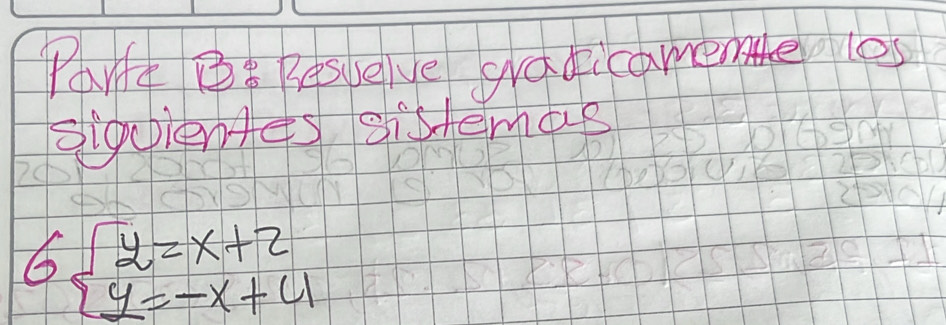 Parte B: Resuelve graficamente los
siguientes sistemas
6 { y = x + 2
y = -x + 4